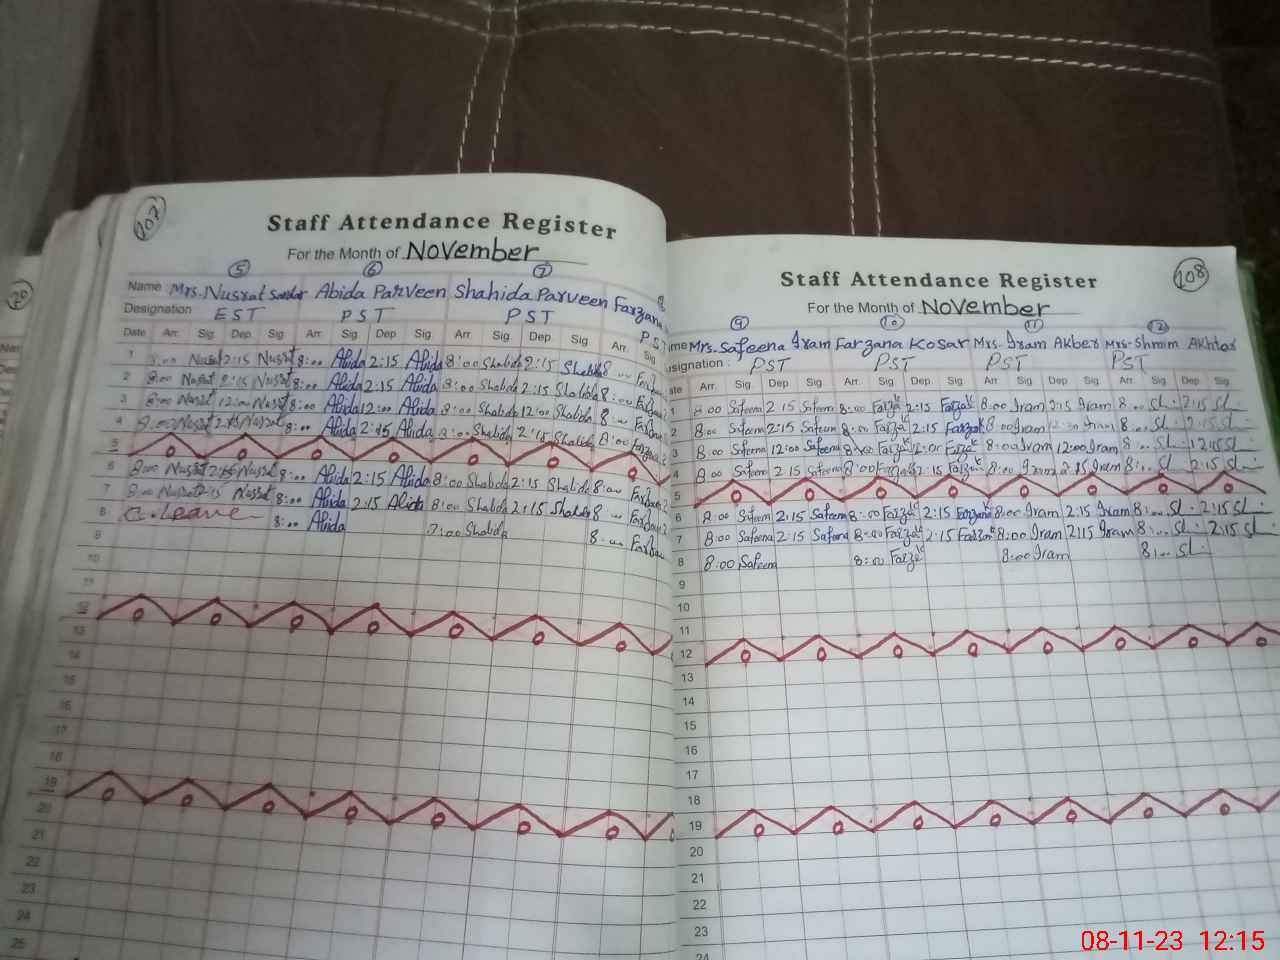 107
Staff Attendance Register
For the Month of November
5 6 7 8
Name Mrs. Nusrat Sardar Abida Parveen Shahida Parveen Farzana
Designation EST PST PST PST
Date Arr. Sig. Dep Sig. Arr. Sig. Dep Sig. Arr. Sig. Dep Sig. Arr. Sig.
1 8:00 Nusrat 2:15 Nusrat 8:00 Abida 2:15 Abida 8:00 Shahida 2:15 Shahida 8
2 8:00 Nusrat 2:15 Nusrat 8:00 Abida 2:15 Abida 8:00 Shahida 2:15 Shahida 8:00
3 8:00 Nusrat 12:00 Nusrat 8:00 Abida 12:00 Abida 8:00 Shahida 12:00 Shahida 8:00
4 8:00 Nusrat 2:15 Nusrat 8:00 Abida 2:15 Abida 8:00 Shahida 2:15 Shahida 8:00
5
6 8:00 Nusrat 2:15 Nusrat 8:00 Abida 2:15 Abida 8:00 Shahida 2:15 Shahida 8:00
7 8:00 Nusrat 2:15 Nusrat 8:00 Abida 2:15 Abida 8:00 Shahida 2:15 Shahida 8
8 C. Leave 8:00 Abida Shahida 8:00
9
10
11
12
13
14
15
16
17
18
19
20
21
22
23
24
25
108
Staff Attendance Register
For the Month of November
9 10 11 12
me Mrs. Safeena Iram Farzana Kosar Mrs. Iram Akber Mrs. Shmim Akhtar
esignation: PST PST PST PST
ate Arr. Sig. Dep Sig. Arr. Sig. Dep Sig. Arr. Sig. Dep Sig. Arr. Sig. Dep Sig.
1 8:00 Safeena 2:15 Safeena 8:00 2:15 8:00 Iram 2:15 Iram 8:00 Sh. 2:15 Sh.
2 8:00 Safeena 2:15 Safeena 8:00 2:15 8:00 Iram Iram 8:00 Sh. 2:15 Sh.
3 8:00 Safeena 12:00 Safeena 8:00 12:00 8:00 Iram 12:00 Iram 8:00 Sh. Sh.
4 8:00 Safeena 2:15 Safeena 8:00 2:15 8:00 Iram 2:15 Iram 8:00 Sh. 2:15 Sh.
5
6 8:00 Safeena 2:15 Safeena 8:00 2:15 8:00 Iram 2:15 Iram 8:00 Sh. 2:15 Sh.
7 8:00 Safeena 2:15 Safeena 8:00 2:15 8:00 Iram 2:15 Iram 8:00 Sh. 2:15 Sh.
8 8:00 Safeena 8:00 8:00 Iram 8:00 Sh.
9
10
11
12
13
14
15
16
17
18
19
20
21
22
23
24
08-11-23 12:15